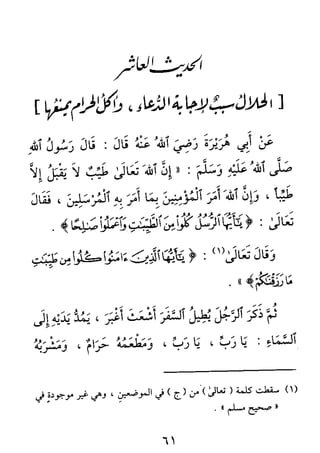 الحديث العاشر
[ الحلال سبب لإجابة الدعاء ، وأكل الحرام يمنعها ]
عَنْ أَبِي هُرَيْرَةَ رَضِيَ اللهُ عَنْهُ قَالَ : قَالَ رَسُولُ اللهِ
صَلَّى اللهُ عَلَيْهِ وَسَلَّمَ : « إِنَّ اللهَ تَعَالَىٰ طَيِّبٌ لَا يَقْبَلُ إِلَّا
طَيِّباً ، وَإِنَّ اللهَ أَمَرَ الْمُؤْمِنِينَ بِمَا أَمَرَ بِهِ الْمُرْسَلِينَ ، فَقَالَ
تَعَالَىٰ : ﴿ يَٰٓأَيُّهَا ٱلرُّسُلُ كُلُوا۟ مِنَ ٱلطَّيِّبَٰتِ وَٱعْمَلُوا۟ صَٰلِحًا ﴾ .
وَقَالَ تَعَالَىٰ (١) : ﴿ يَٰٓأَيُّهَا ٱلَّذِينَ ءَامَنُوا۟ كُلُوا۟ مِن طَيِّبَٰتِ
مَا رَزَقْنَٰكُمْ ﴾ » .
ثُمَّ ذَكَرَ الرَّجُلَ يُطِيلُ السَّفَرَ أَشْعَثَ أَغْبَرَ ، يَمُدُّ يَدَيْهِ إِلَى
السَّمَاءِ : يَا رَبِّ ، يَا رَبِّ ، وَمَطْعَمُهُ حَرَامٌ ، وَمَشْرَبُهُ
(١) سقطت كلمة ( تعالىٰ ) من ( ج ) في الموضعين ، وهي غير موجودة في
« صحيح مسلم » .
٦١